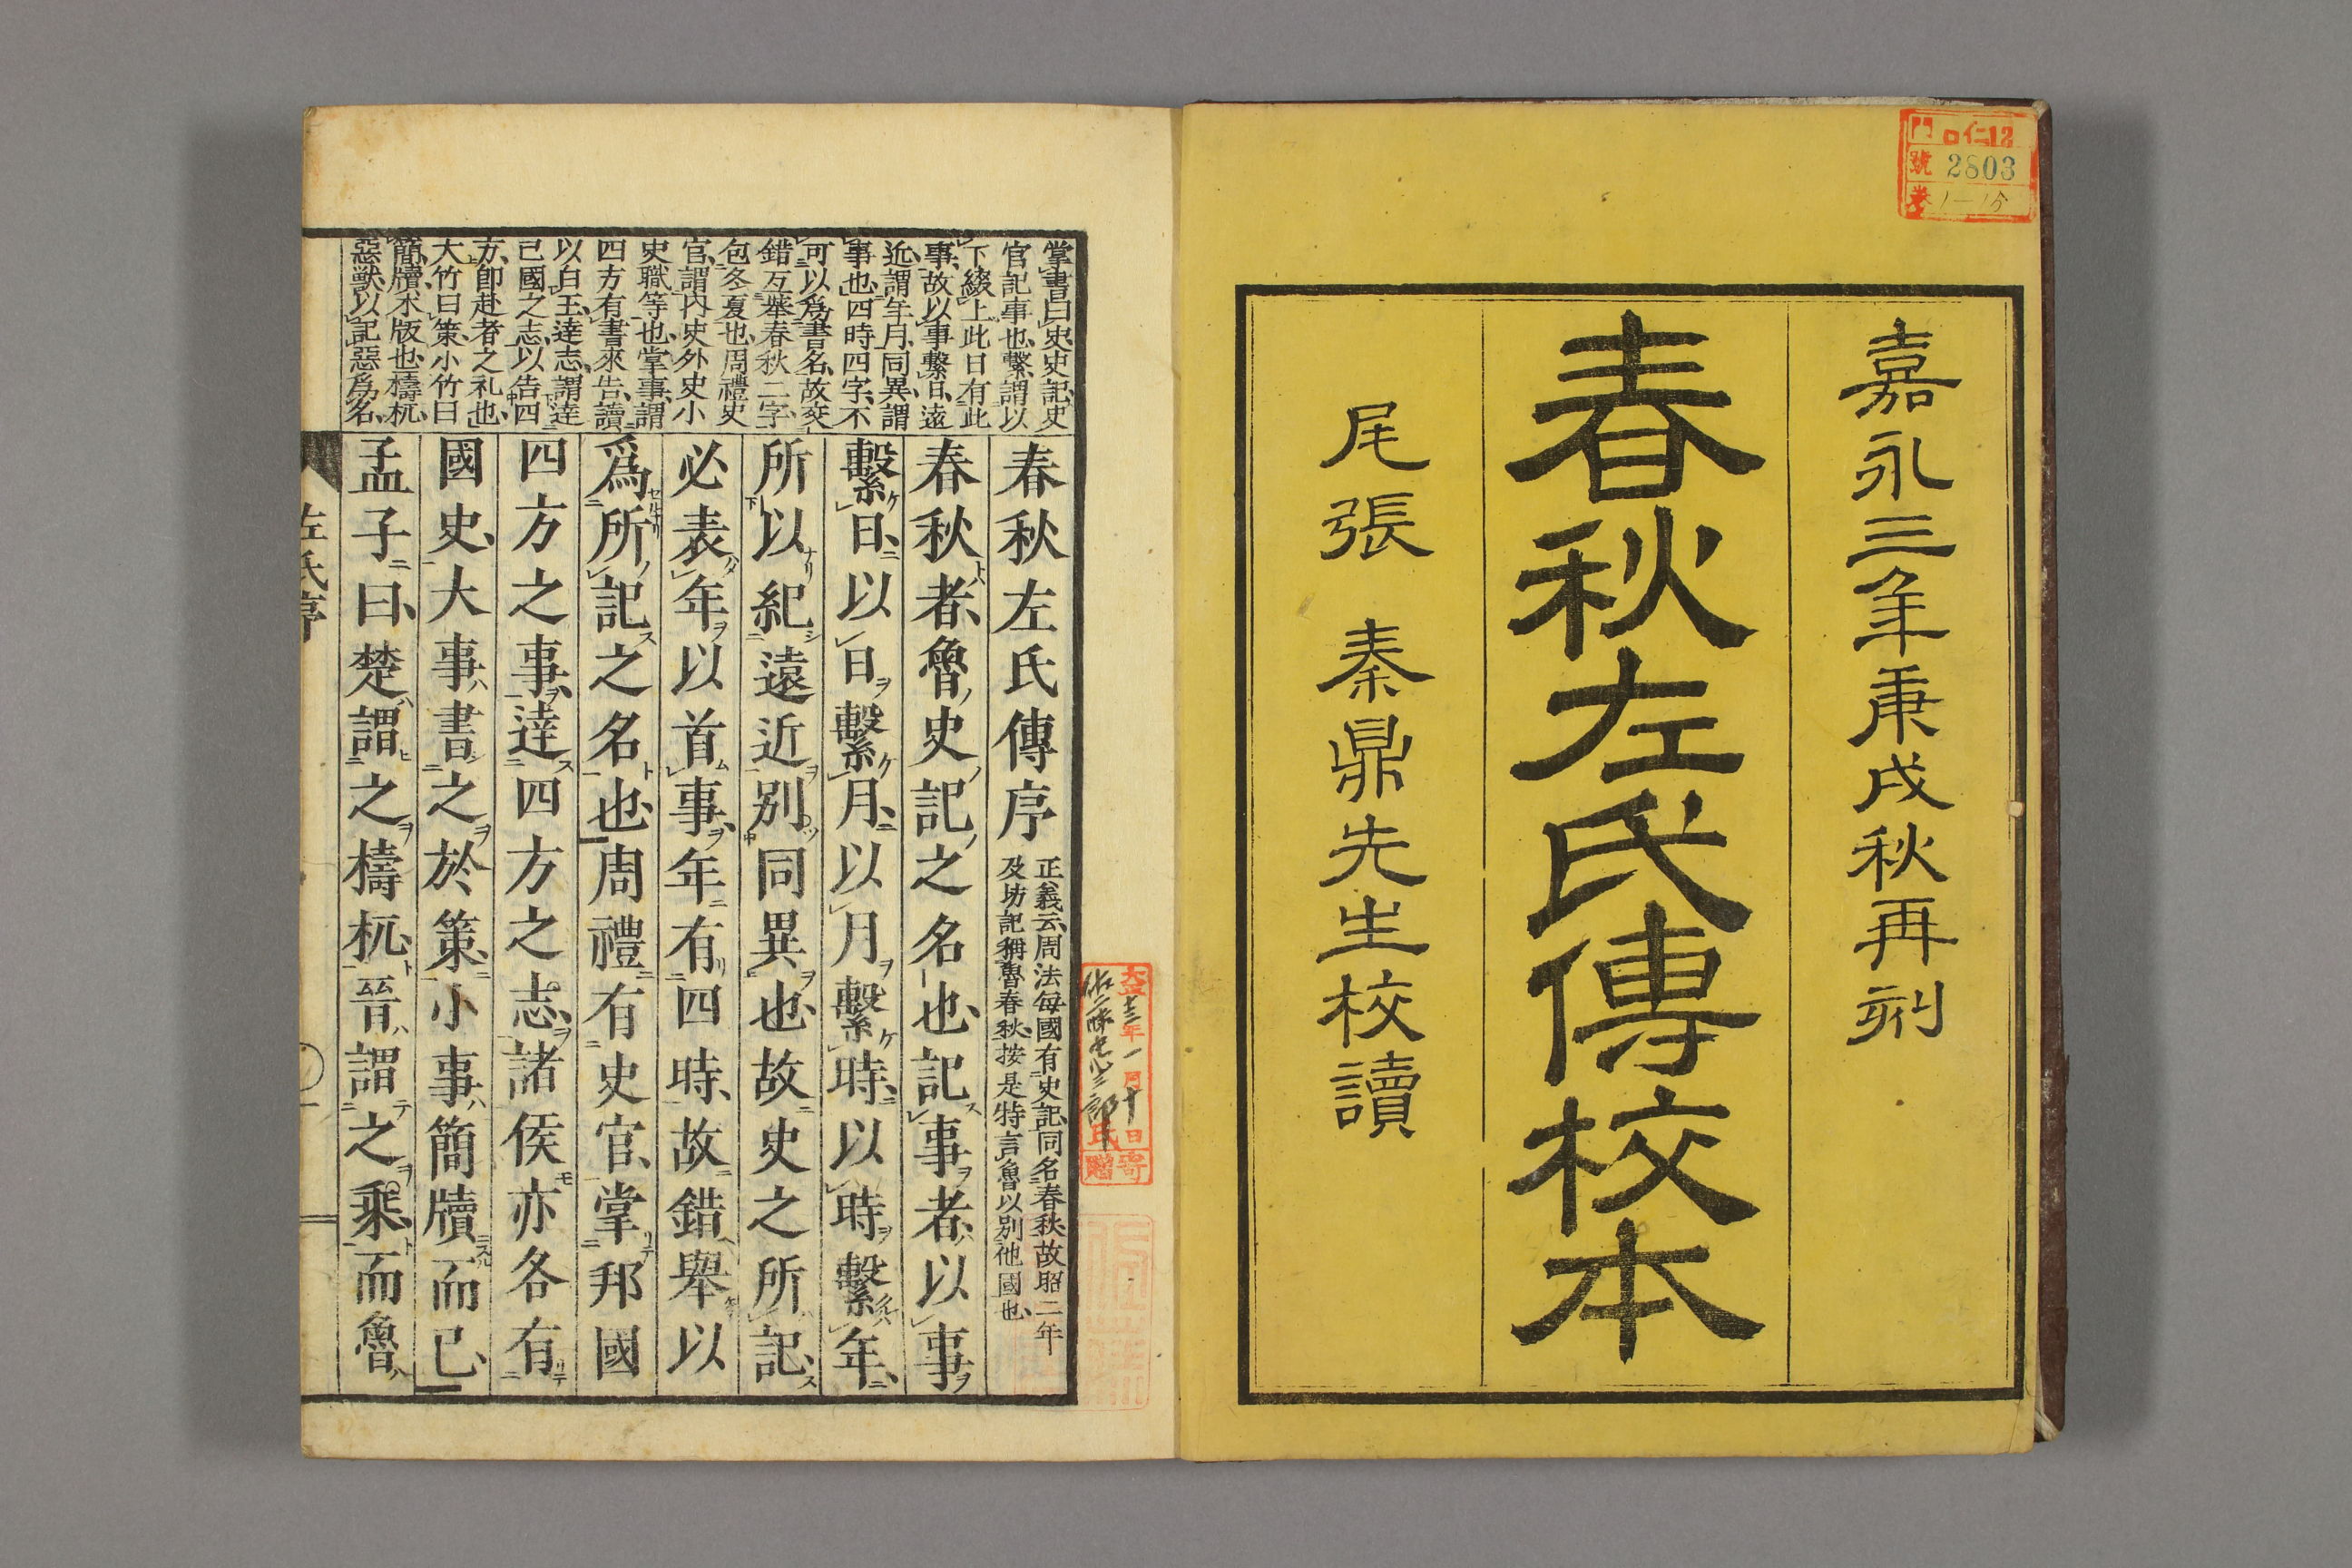 門 ロ仁12
號 2803
卷 1-15
嘉永三年庚戌秋再刻
春秋左氏傳校本
尾張 秦鼎先生校讀
掌書曰史史記史
官記事也繫謂以
下綴上此日有此
事故以事繫日遠
近謂年月同異謂
事也四時四字不
可以爲書名故交
錯互舉春秋二字
包冬夏也周禮史
官謂內史外史小
史職等也掌事謂
四方有書來告讀
以白王達志謂達
己國之志以告四
方卽赴者之礼也
大竹曰策小竹曰
簡牘木版也檮杌
惡獸以記惡爲名
春秋左氏傳序
正義云周法每國有史記同名春秋故昭二年
及坊記稱魯春秋按是特言魯以別他國也
春秋者魯史記之名也記事者以事
繫日以日繫月以月繫時以時繫年
所以紀遠近別同異也故史之所記
必表年以首事年有四時故錯舉以
爲所記之名也周禮有史官掌邦國
四方之事達四方之志諸侯亦各有
國史大事書之於策小事簡牘而已
孟子曰楚謂之檮杌晉謂之乘而魯
左氏序
大正十三年一月十日寄
佐藤忠三郎氏贈